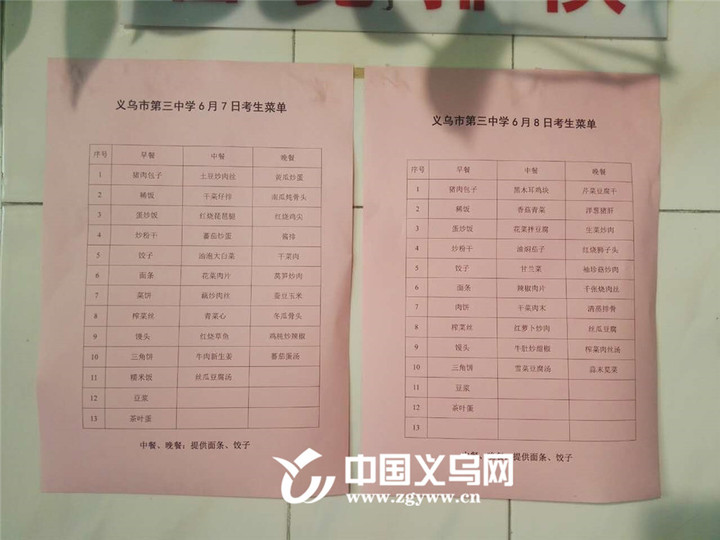 义乌市第三中学6月7日考生菜单
序号 早餐 中餐 晚餐
1 猪肉包子 土豆炒肉丝 黄瓜炒蛋
2 稀饭 干菜仔排 南瓜炖骨头
3 蛋炒饭 红烧琵琶腿 红烧鸡尖
4 炒粉干 蕃茄炒蛋
5 饺子 油泡大白菜 干菜肉
6 面条 花菜肉片 莴笋炒肉
7 菜饼 藕炒肉丝 蚕豆玉米
8 榨菜丝 青菜心 冬瓜骨头
9 馒头 红烧草鱼 鸡胗炒辣椒
10 三角饼 牛肉新生姜 蕃茄蛋汤
11 糯米饭 丝瓜豆腐汤
12 豆浆
13 茶叶蛋
中餐、晚餐：提供面条、饺子
义乌市第三中学6月8日考生菜单
序号 早餐 中餐 晚餐
1 猪肉包子 黑木耳鸡块 芹菜豆腐干
2 稀饭 香菇青菜 洋葱猪肝
3 蛋炒饭 花菜拌豆腐 生菜炒肉
4 炒粉干 油焖茄子 红烧狮子头
5 饺子 甘兰菜 袖珍菇炒肉
6 面条 辣椒肉片 千张烧肉丝
7 肉饼 干菜肉末 清蒸排骨
8 榨菜丝 红萝卜炒肉 丝瓜豆腐
9 馒头 牛肚炒甜椒 榨菜肉丝汤
10 三角饼 雪菜豆腐汤 蒜米苋菜
11 豆浆
12 茶叶蛋
13
中餐、晚餐：提供面条、饺子
中国义乌网
www.zgyww.cn